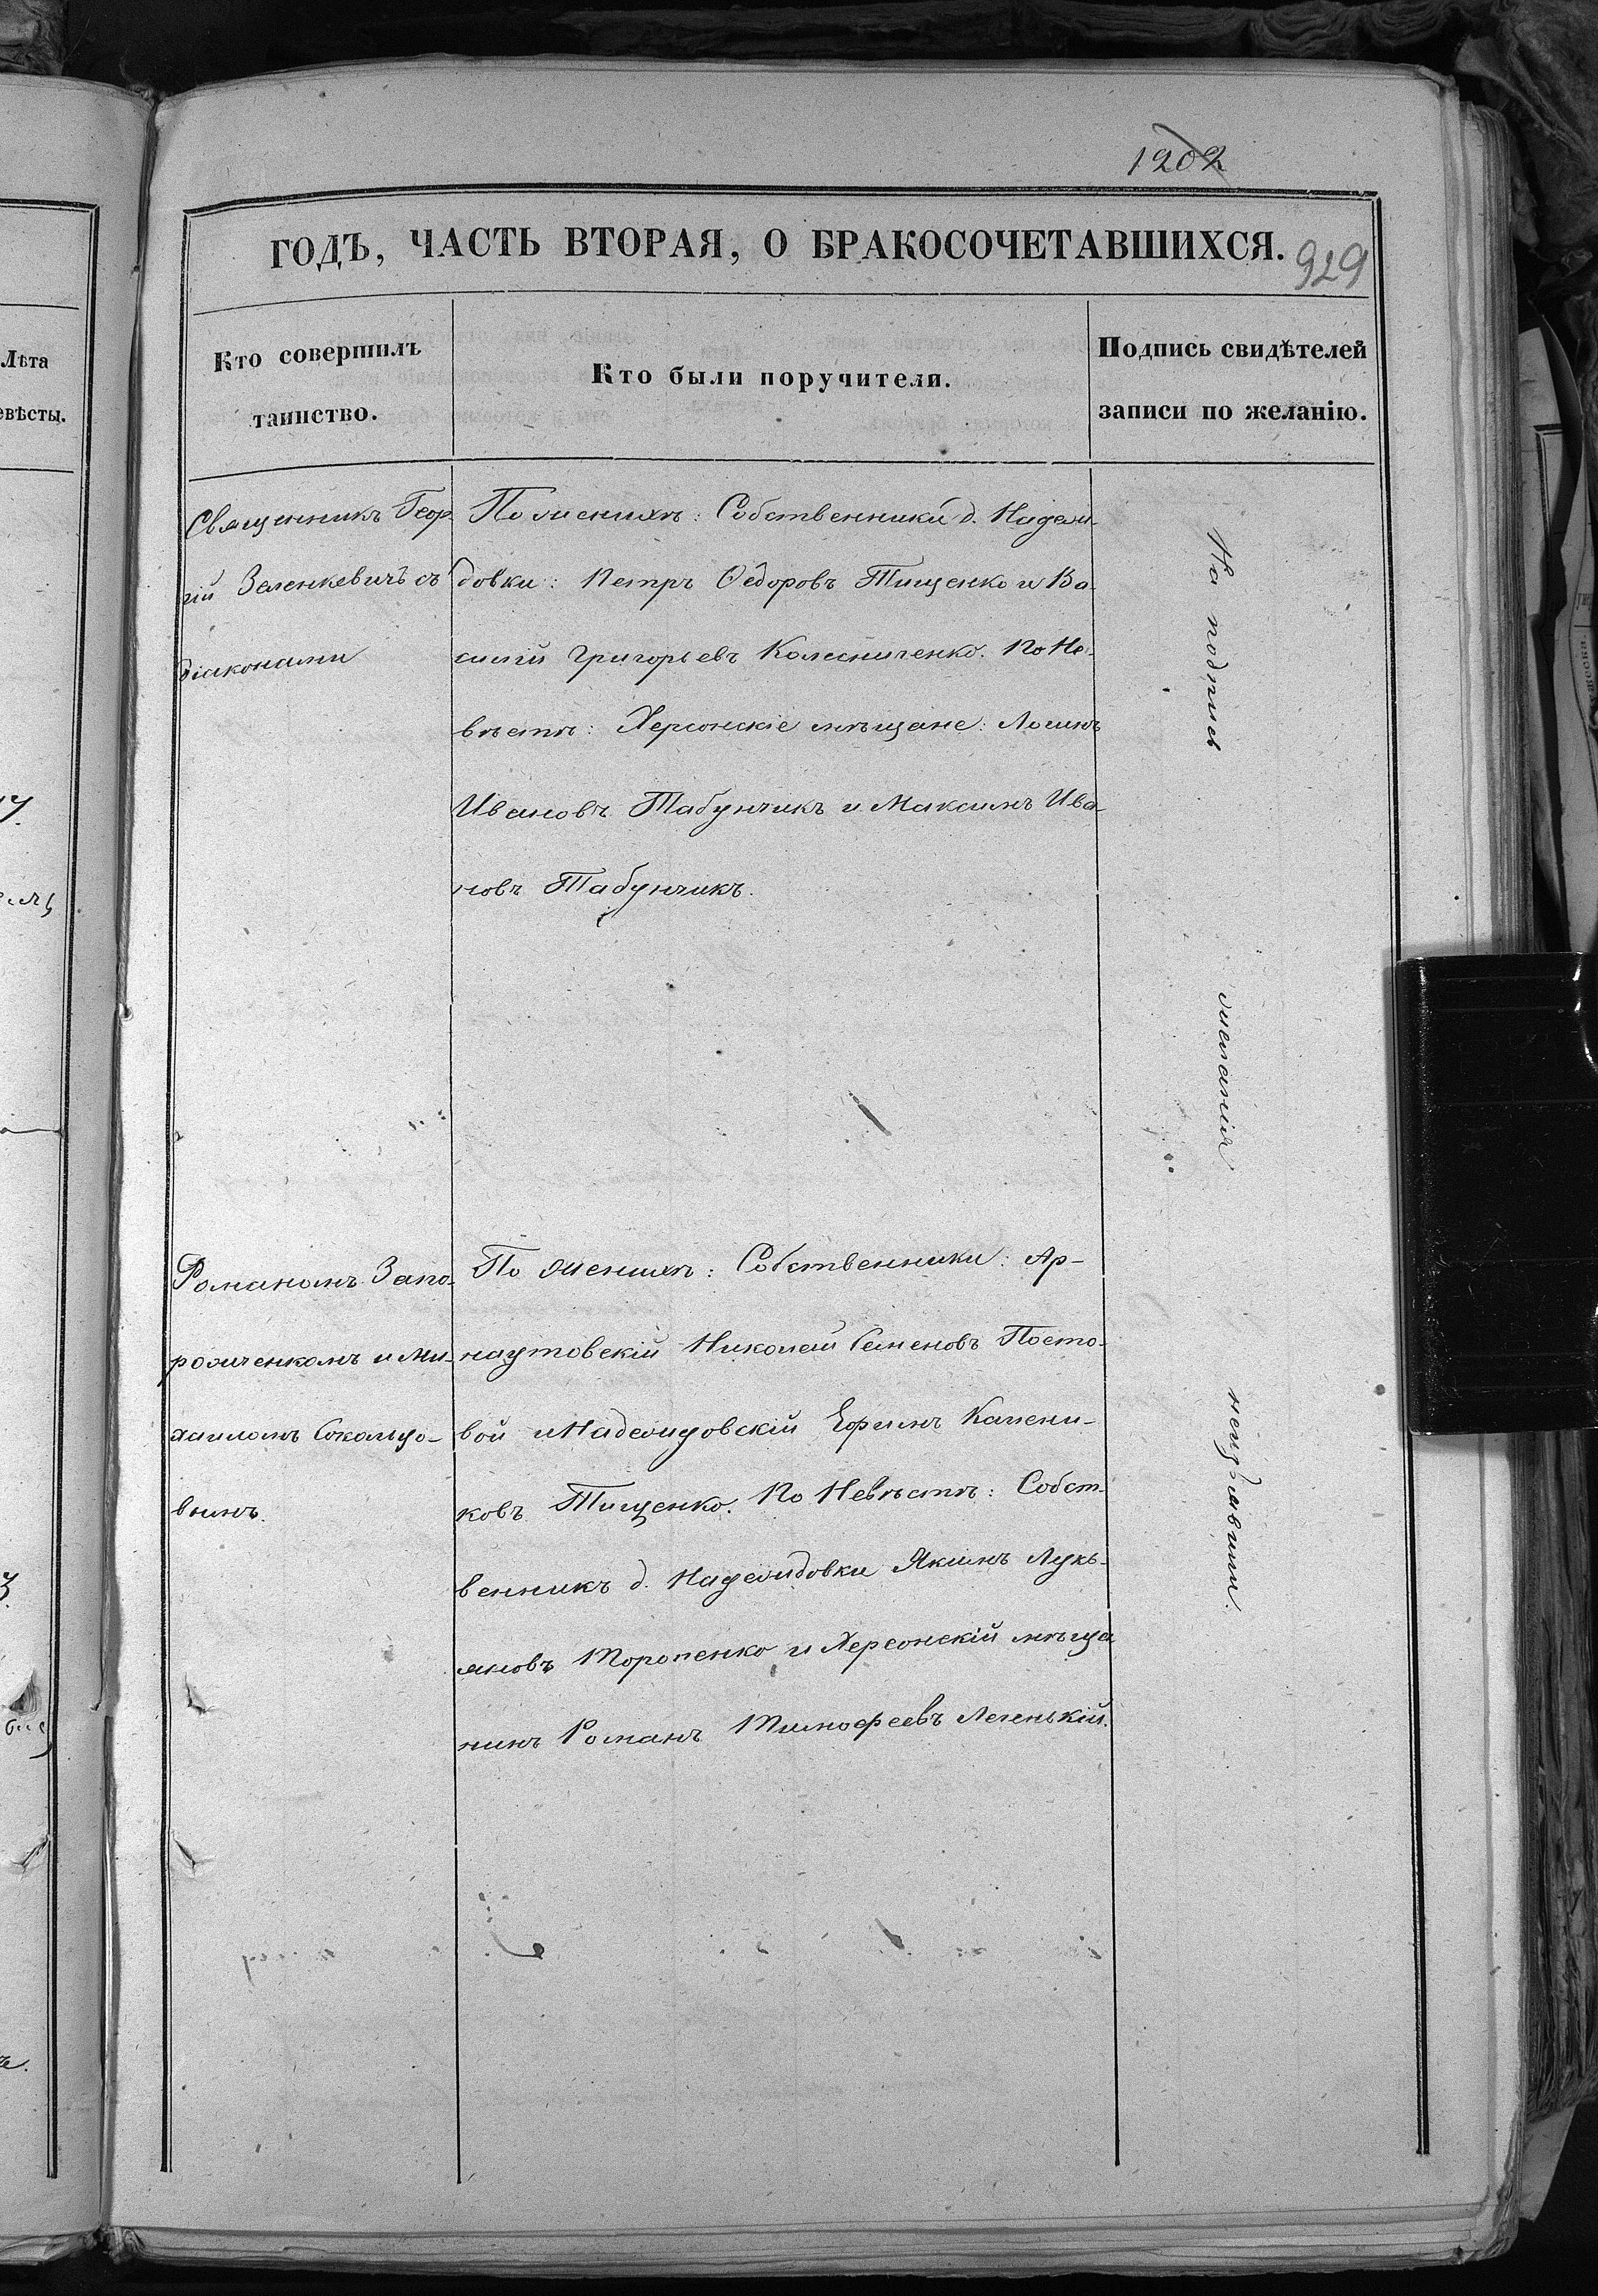 1202
ГОДЪ, ЧАСТЬ ВТОРАЯ, О БРАКОСОЧЕТАВШИХСЯ.
929
Лѣта
евѣсты.
Кто совершилъ
таинство.
Кто были поручители.
Подпись свидѣтелей
записи по желанію.
Священникъ Геор-
гій Зеленкевичъ съ
діаконами
По женихѣ: Собственники д. Надеж-
довки: Петръ Ѳедоровъ Тищенко и Ва-
силій Григорьевъ Колесниченко. По Не-
вѣстѣ: Херсонскіе мѣщане: Логинъ
Ивановъ Табунчикъ и Максимъ Ива-
новъ Табунчикъ.
Романомъ Запо-
рожченкомъ и Ми-
хаиломъ Сокальцо-
вымъ.
По женихѣ: Собственники: Ар-
наутовскій Николай Семеновъ Посто-
вой и Надеждовскій Ефимъ Калени-
ковъ Тищенко. По Невѣстѣ: Собст-
венникъ д. Надеждовки Якимъ Лукь-
яновъ Торопенко и Херсонскій мѣща
нинъ Романъ Тимофеевъ Легенькій.
На подпись
желанія
неизъявили.